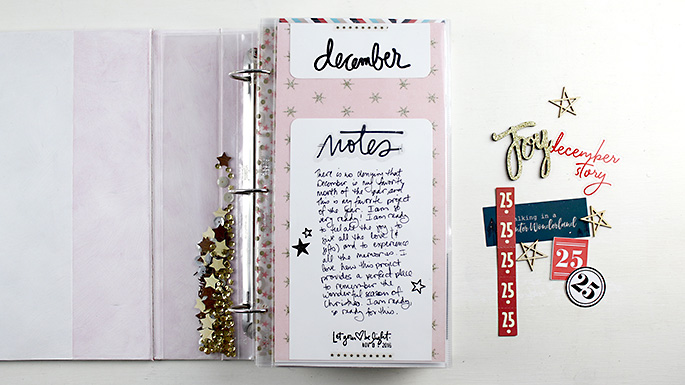 december
notes
There is no denying that
December is my favorite
month of the year, and
this is my favorite project
of the year. I am so
very ready! I am ready
to feel all the joy, to
give all the love (&
gifts) and to experience
all the memories. I
love how this project
provides a perfect place
to remember the
wonderful season of
Christmas. I am ready,
so ready for this.
Let your light.
NOV 2016
Joy
december
story
25
25
25
25
25
lking in a
nter Wonderland
25
25